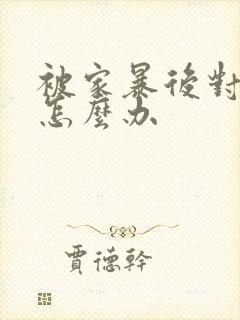 被家暴後對
怎麼办
賈德幹